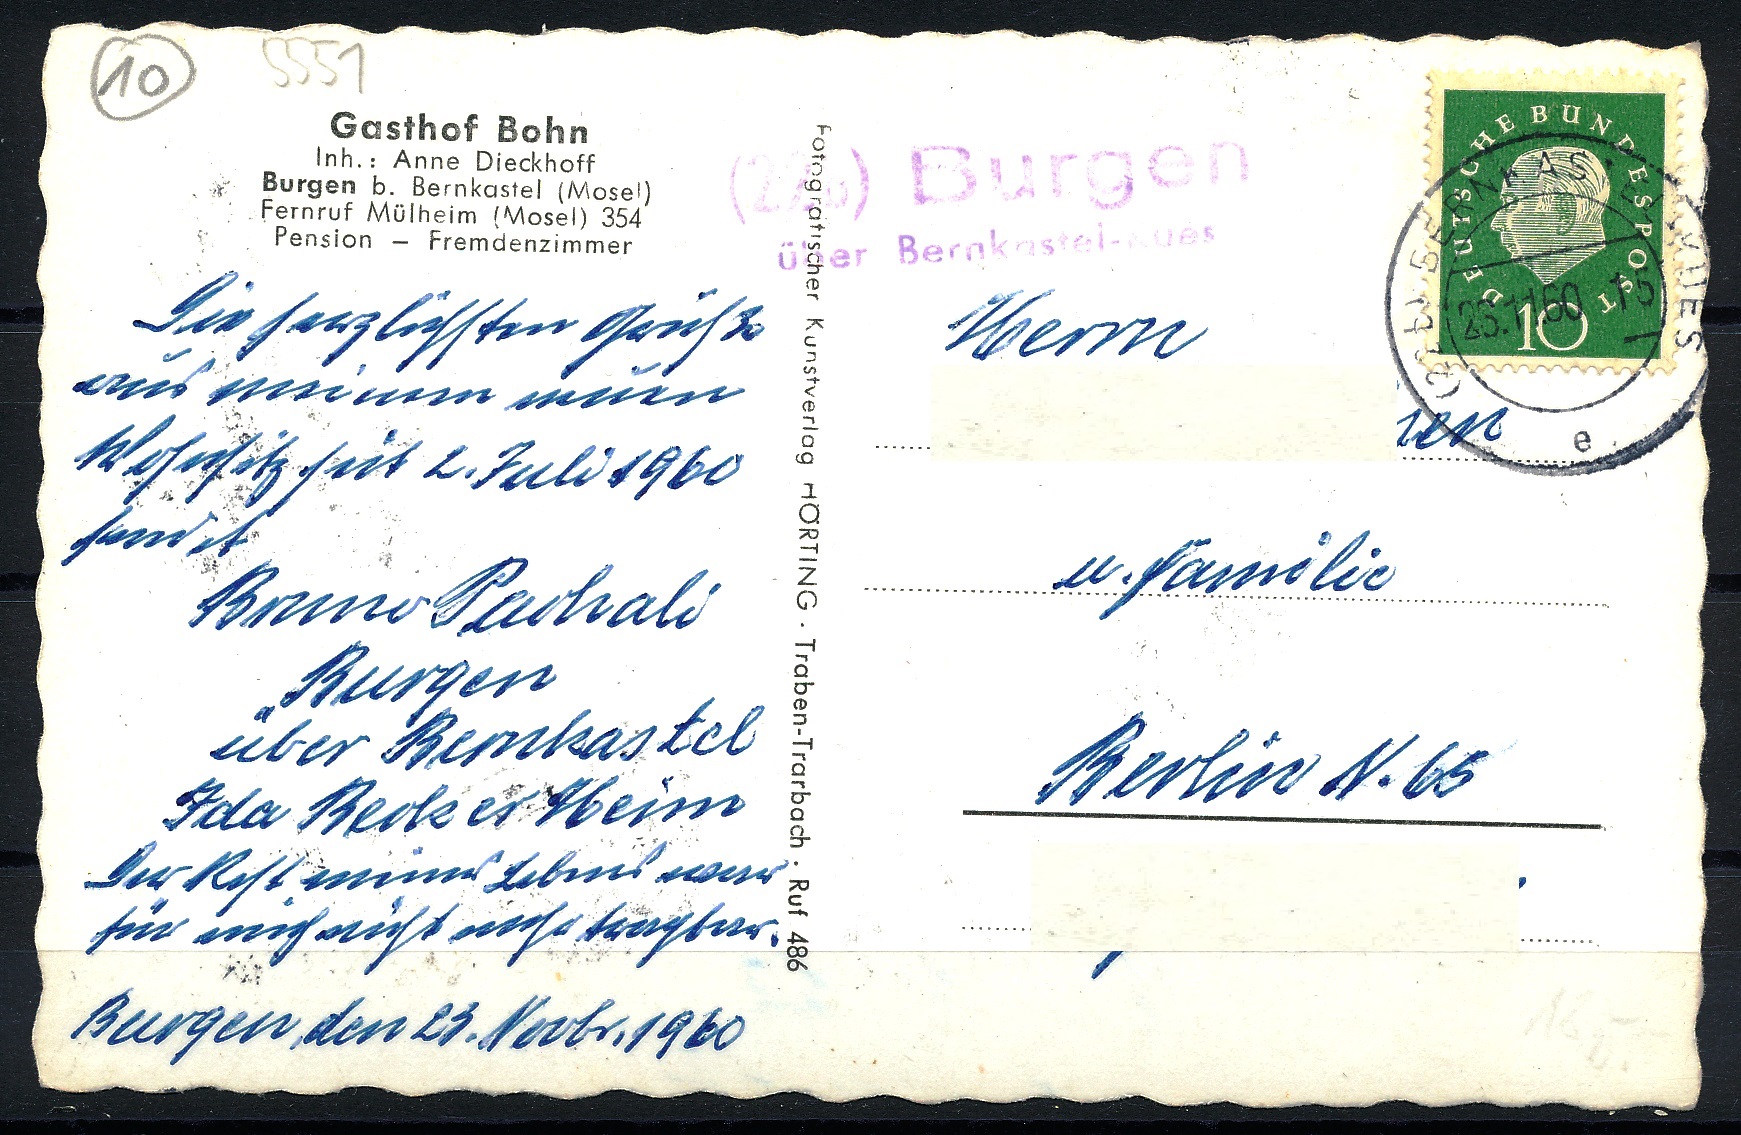 10
5551
Gasthof Bohn
Inh.: Anne Dieckhoff
Burgen b. Bernkastel (Mosel)
Fernruf Mülheim (Mosel) 354
Pension – Fremdenzimmer
Die herzlichsten Grüße
aus meinem neuen
Wohnsitz seit 2. Juli 1960
sendet
Bruno
Burgen
über Bernkastel
Ida Becker Heim
Der Rest meines Lebens war
für mich nicht mehr tragbar.
Burgen, den 23. Novbr. 1960
Fotografischer Kunstverlag HÖRTING · Traben-Trarbach · Ruf 486
(22b) Burgen
über Bernkastel-Kues
DEUTSCHE BUNDESPOST
10
(22b) BERNKASTEL-KUES
23.11.60 15
e
Herrn
u. Familie
Berlin N. 65